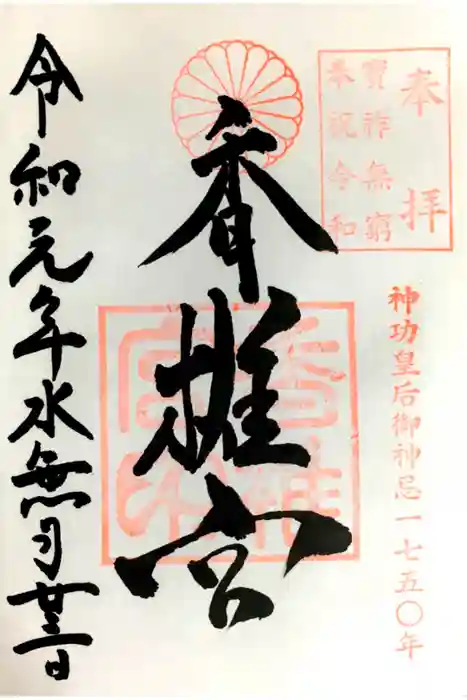 奉拝
寶祚無窮
奉祝令和
神功皇后御神忌一七五〇年
香椎宮
令和元年水無月廿三日